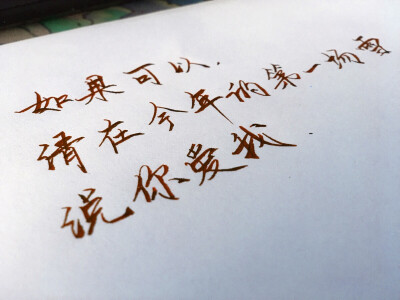 如果可以.
请在今年的第一场雪
说你爱我.